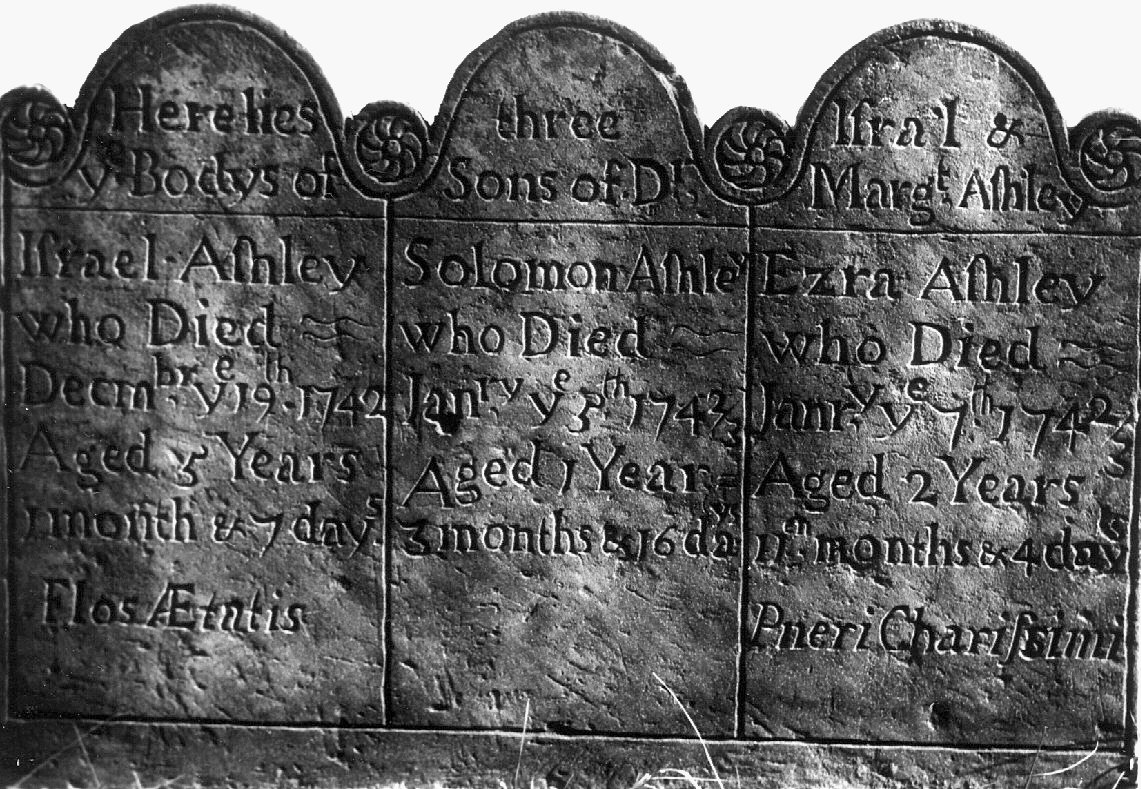 Here lies three Iſra'l &
yͤ Bodys of Sons of Dʳ Margᵗ Aſhley
Iſrael Aſhley
who Died
Decmbʳ. yͤ 19ᵗʰ. 1742
Aged 5 Years
1 month & 7 dayˢ
Flos Ætatis
Solomon Aſhleʸ
who Died
Janʳʸ. yͤ 3ᵗʰ 1742/3
Aged 1 Year
3 months & 16 daʸˢ
Ezra Aſhley
who Died
Janrʸ. yͤ 7ᵗʰ 1742/3
Aged 2 Years
11ᵐ months & 4 dayˢ
Pueri Chariſsimi